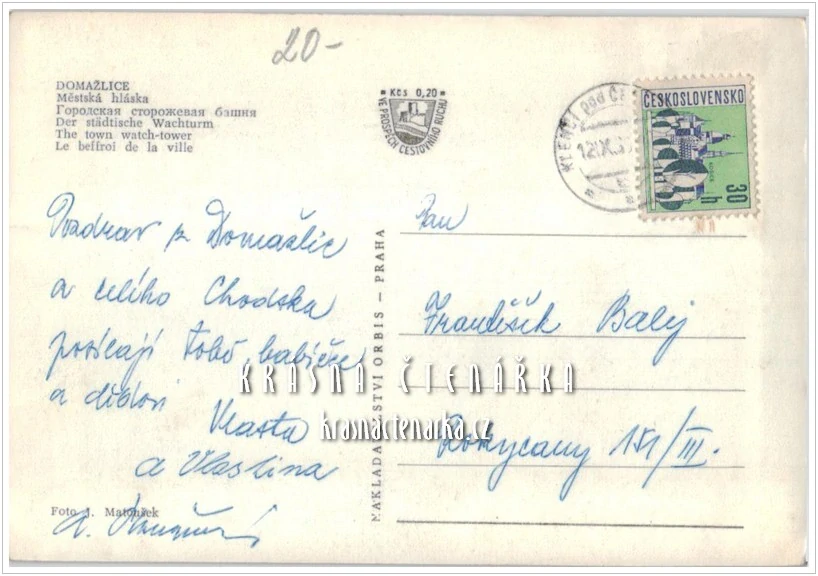 20-
DOMAŽLICE
Městská hláska
Городская сторожевая башня
Der städtische Wachturm
The town watch-tower
Le beffroi de la ville
Kčs 0,20
VE PROSPĚCH CESTOVNÍHO RUCHU
KLENČÍ pod Č
12.IX.6
ČESKOSLOVENSKO
30 h
Pozdrav z Domažlic
a celého Chodska
posílají Tobě, babičce
a dědovi Vlasta
a Vlastina
Foto J. Matoušek
NAKLADATELSTVÍ ORBIS — PRAHA
Pan
František Balej
Rokycany 151/III.
KRÁSNÁ ČTENÁŘKA
krasnactenarka.cz